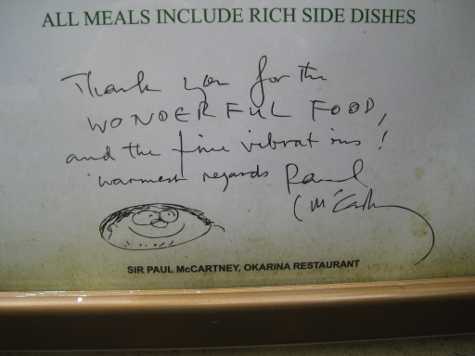 ALL MEALS INCLUDE RICH SIDE DISHES
Thank you for the
WONDERFUL FOOD,
and the fine vibrations!
warmest regards Paul
McCartney
SIR PAUL McCARTNEY, OKARINA RESTAURANT